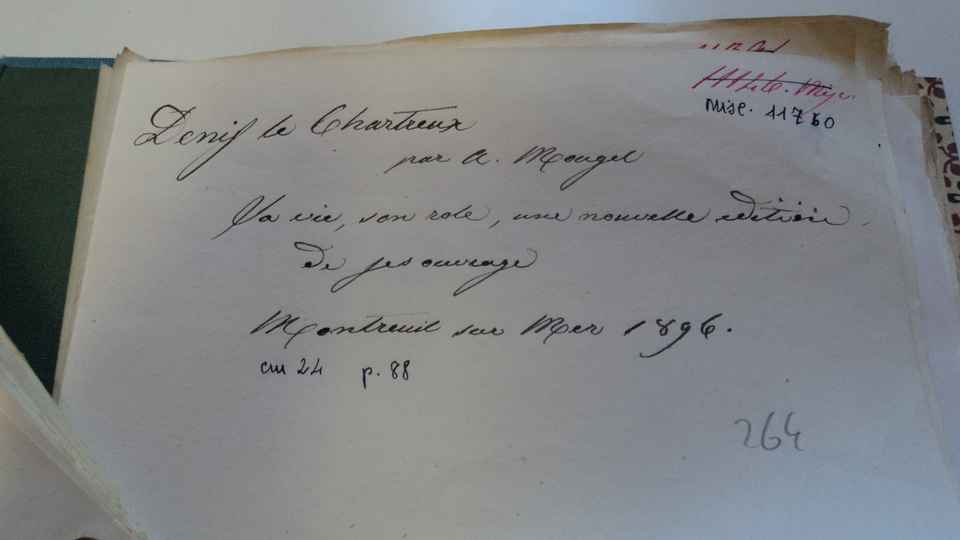 Misc. 11760
Denis le Chartreux
par A. Mougel
Sa vie, son role, une nouvelle edition
de ses ouvrage
Montreuil sur Mer 1896.
cm 24 p. 88
264